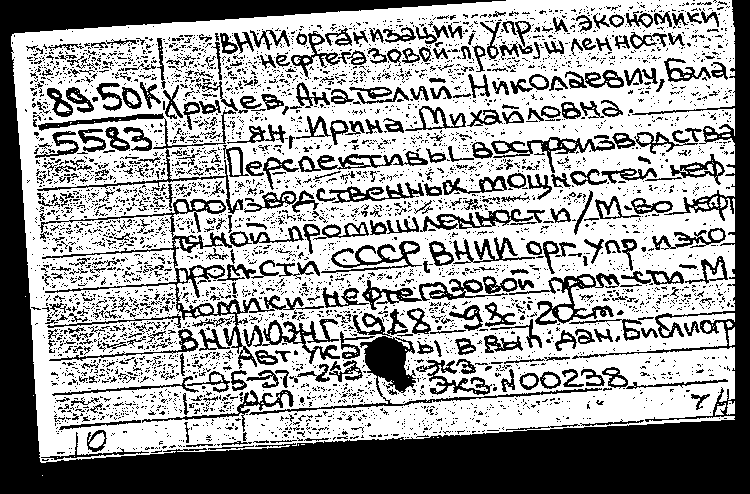 ВНИИ организации, упр. и экономики
нефтегазовой промышленности.
89-50К
5583
Хрычев, Анатолий Николаевич, Бала-
ян, Ирина Михайловна.
Перспективы воспроизводства
производственных мощностей неф-
тяной промышленности / М-во нефт
пром-сти СССР, ВНИИ орг., упр. и эко-
номики нефтегазовой пром-сти - М.
ВНИИОЭНГ, 1988. - 98с., 20см.
Авт. ука ны в вып. дан. Библиогр
с. 95-97. - 243 экз
Дсп. Экз. N00238.
10